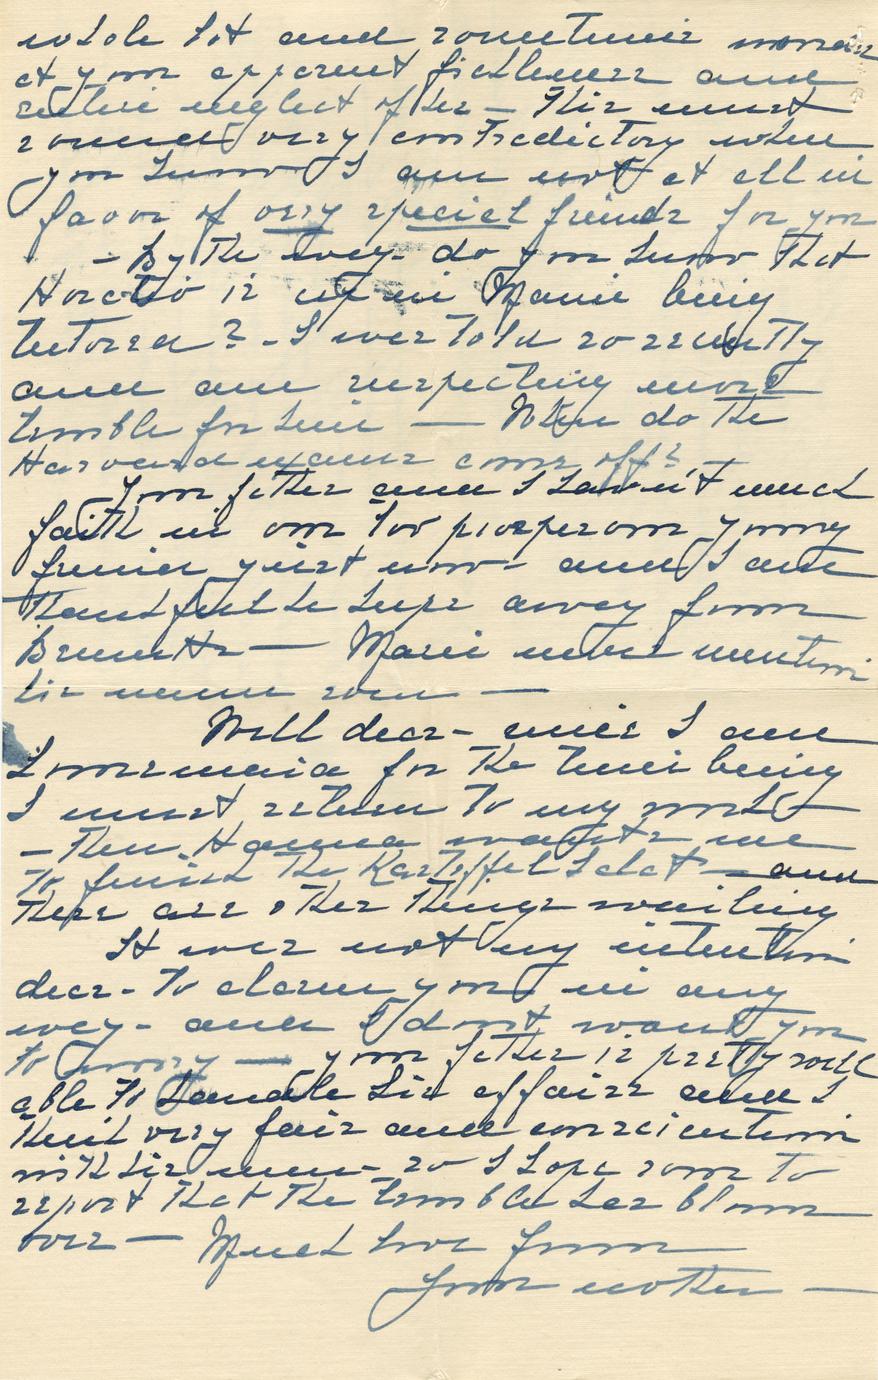 whole lot and sometimes wonder
at your apparent fickleness and
entire neglect of her — This must
sound very contradictory when
you know I am not at all in
favor of very special friends for you
— By the way - do you know that
Horatio is up in Maine being
tutored? - I was told so recently
and am expecting more
trouble for him — When do the
Harvard exams come off? —
Your father and I haven't much
faith in our too prosperous young
friend just now - and I am
thankful he keeps away from
Brunetta — Marie never mentions
his name even —
Well dear - since I am
housemaid for the time being
I must return to my work —
— then Hanna wants me
to finish the Kartoffel Salat — and
there are other things waiting
It was not my intention
dear - to alarm you in any
way - and I don't want you
to worry — your father is pretty well
able to handle his affairs and I
think very fair and conscientious
with his men - so I hope soon to
report that the trouble has blown
over — Much love from
Your mother —